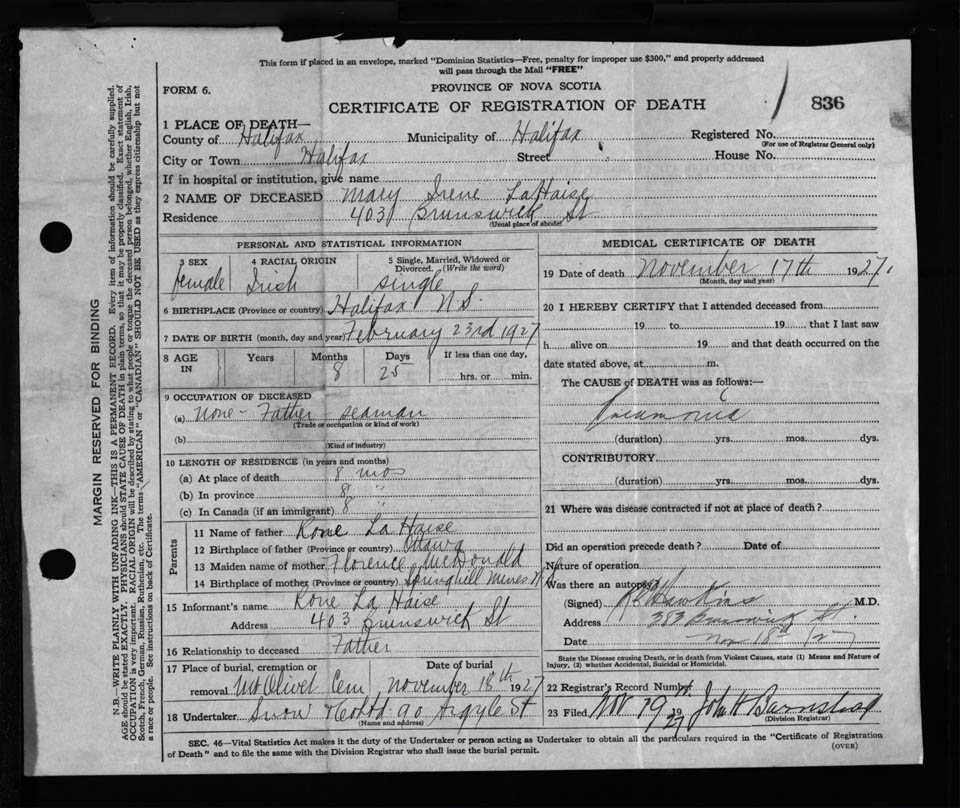 This form if placed in an envelope, marked "Dominion Statistics—Free, penalty for improper use $300," and properly addressed
will pass through the Mail "FREE"
FORM 6.
PROVINCE OF NOVA SCOTIA
CERTIFICATE OF REGISTRATION OF DEATH
836
1 PLACE OF DEATH—
County of Halifax Municipality of Halifax Registered No.
(For use of Registrar General only)
City or Town Halifax Street House No.
If in hospital or institution, give name
2 NAME OF DECEASED Mary Irene LaHaise
Residence 403 Brunswick St
(Usual place of abode)
PERSONAL AND STATISTICAL INFORMATION
3 SEX 4 RACIAL ORIGIN 5 Single, Married, Widowed or
Divorced. (Write the word)
female Irish single
6 BIRTHPLACE (Province or country) Halifax N.S.
7 DATE OF BIRTH (month, day and year) February 23rd 1927
8 AGE IN Years Months Days If less than one day,
8 25 hrs. or min.
9 OCCUPATION OF DECEASED
(a) None - Father - seaman
(Trade or occupation or kind of work)
(b)
(Kind of industry)
10 LENGTH OF RESIDENCE (in years and months)
(a) At place of death 8 mos
(b) In province 8 "
(c) In Canada (if an immigrant) 8 "
Parents
11 Name of father La Haise
12 Birthplace of father (Province or country) Ottawa
13 Maiden name of mother Florence McDonald
14 Birthplace of mother (Province or country) Springhill Mines N.S.
15 Informant's name La Haise
Address 403 Brunswick St
16 Relationship to deceased Father
17 Place of burial, cremation or Date of burial
removal Mt Olivet Cem November 18th 1927
18 Undertaker Snow & Co Ltd 90 Argyle St
(Name and address)
MEDICAL CERTIFICATE OF DEATH
19 Date of death November 17th 1927.
(Month, day and year)
20 I HEREBY CERTIFY that I attended deceased from
19 to 19 that I last saw
h alive on 19 and that death occurred on the
date stated above, at m.
The CAUSE of DEATH was as follows:—
Pneumonia
(duration) yrs. mos. dys.
CONTRIBUTORY
(duration) yrs. mos. dys.
21 Where was disease contracted if not at place of death?
Did an operation precede death? Date of
Nature of operation
Was there an autopsy?
(Signed) Hawkins M.D.
Address 383 Brunswick St.
Date Nov 18th /27
State the Disease causing Death, or in death from Violent Causes, state (1) Means and Nature of
Injury, (2) whether Accidental, Suicidal or Homicidal.
22 Registrar's Record Number
23 Filed Nov 19 1927 John H Barnstead
(Division Registrar)
SEC. 46—Vital Statistics Act makes it the duty of the Undertaker or person acting as Undertaker to obtain all the particulars required in the "Certificate of Registration
of Death" and to file the same with the Division Registrar who shall issue the burial permit.
(OVER)
MARGIN RESERVED FOR BINDING
N.B.—WRITE PLAINLY WITH UNFADING INK—THIS IS A PERMANENT RECORD. Every item of information should be carefully supplied.
AGE should be stated EXACTLY. PHYSICIANS should STATE CAUSE OF DEATH in plain terms, so that it may be properly classified. Exact statement of
OCCUPATION is very important. RACIAL ORIGIN will be described by stating to what people or tongue the deceased person belonged, whether English, Irish,
Scotch, French, German, Russian, Ruthenian, etc. The terms "AMERICAN" or "CANADIAN" SHOULD NOT BE USED as they express citizenship but not
a race or people. See instructions on back of Certificate.